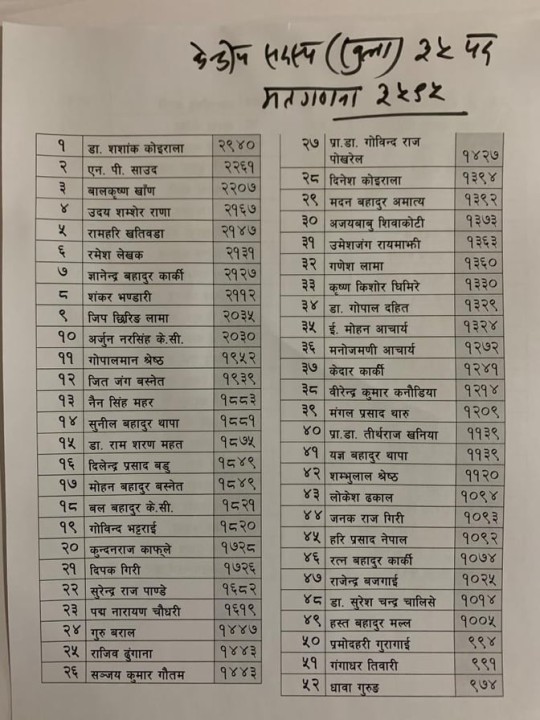 केन्द्रीय सदस्य (खुला) ३५ पद
मतगणना ३५९५
१ डा. शशांक कोइराला २९४०
२ एन. पी. साउद २२६१
३ बालकृष्ण खाँण २२०७
४ उदय शम्शेर राणा २१६७
५ रामहरि खतिवडा २१४७
६ रमेश लेखक २१३१
७ ज्ञानेन्द्र बहादुर कार्की २१२७
८ शंकर भण्डारी २११२
९ जिप छिरिङ लामा २०३५
१० अर्जुन नरसिंह के.सी. २०३०
११ गोपालमान श्रेष्ठ १९५२
१२ जित जंग बस्नेत १९३९
१३ नैन सिंह महर १८८३
१४ सुनील बहादुर थापा १८८१
१५ डा. राम शरण महत १८७५
१६ दिलेन्द्र प्रसाद बडु १८४९
१७ मोहन बहादुर बस्नेत १८४९
१८ बल बहादुर के.सी. १८२१
१९ गोविन्द भट्टराई १८२०
२० कुन्दनराज काफ्ले १७२८
२१ दिपक गिरी १७२६
२२ सुरेन्द्र राज पाण्डे १६८२
२३ पद्म नारायण चौधरी १६१९
२४ गुरु बराल १४४७
२५ राजिव ढुंगाना १४४३
२६ सञ्जय कुमार गौतम १४४३
२७ प्रा.डा. गोविन्द राज
पोखरेल १४२७
२८ दिनेश कोइराला १३९४
२९ मदन बहादुर अमात्य १३९२
३० अजयबाबु शिवाकोटी १३७३
३१ उमेशजंग रायमाझी १३६३
३२ गणेश लामा १३६०
३३ कृष्ण किशोर घिमिरे १३३०
३४ डा. गोपाल दहित १३२९
३५ ई. मोहन आचार्य १३२४
३६ मनोजमणी आचार्य १२७२
३७ केदार कार्की १२४१
३८ वीरेन्द्र कुमार कनौडिया १२१४
३९ मंगल प्रसाद थारु १२०९
४० प्रा.डा. तीर्थराज खनिया ११३९
४१ यज्ञ बहादुर थापा ११३९
४२ शम्भुलाल श्रेष्ठ ११२०
४३ लोकेश ढकाल १०९४
४४ जनक राज गिरी १०९३
४५ हरि प्रसाद नेपाल १०९२
४६ रत्न बहादुर कार्की १०७४
४७ राजेन्द्र बजगाई १०२५
४८ डा. सुरेश चन्द्र चालिसे १०१४
४९ हस्त बहादुर मल्ल १००५
५० प्रमोदहरी गुरागाई ९९४
५१ गंगाधर तिवारी ९९१
५२ धावा गुरुङ ९७४